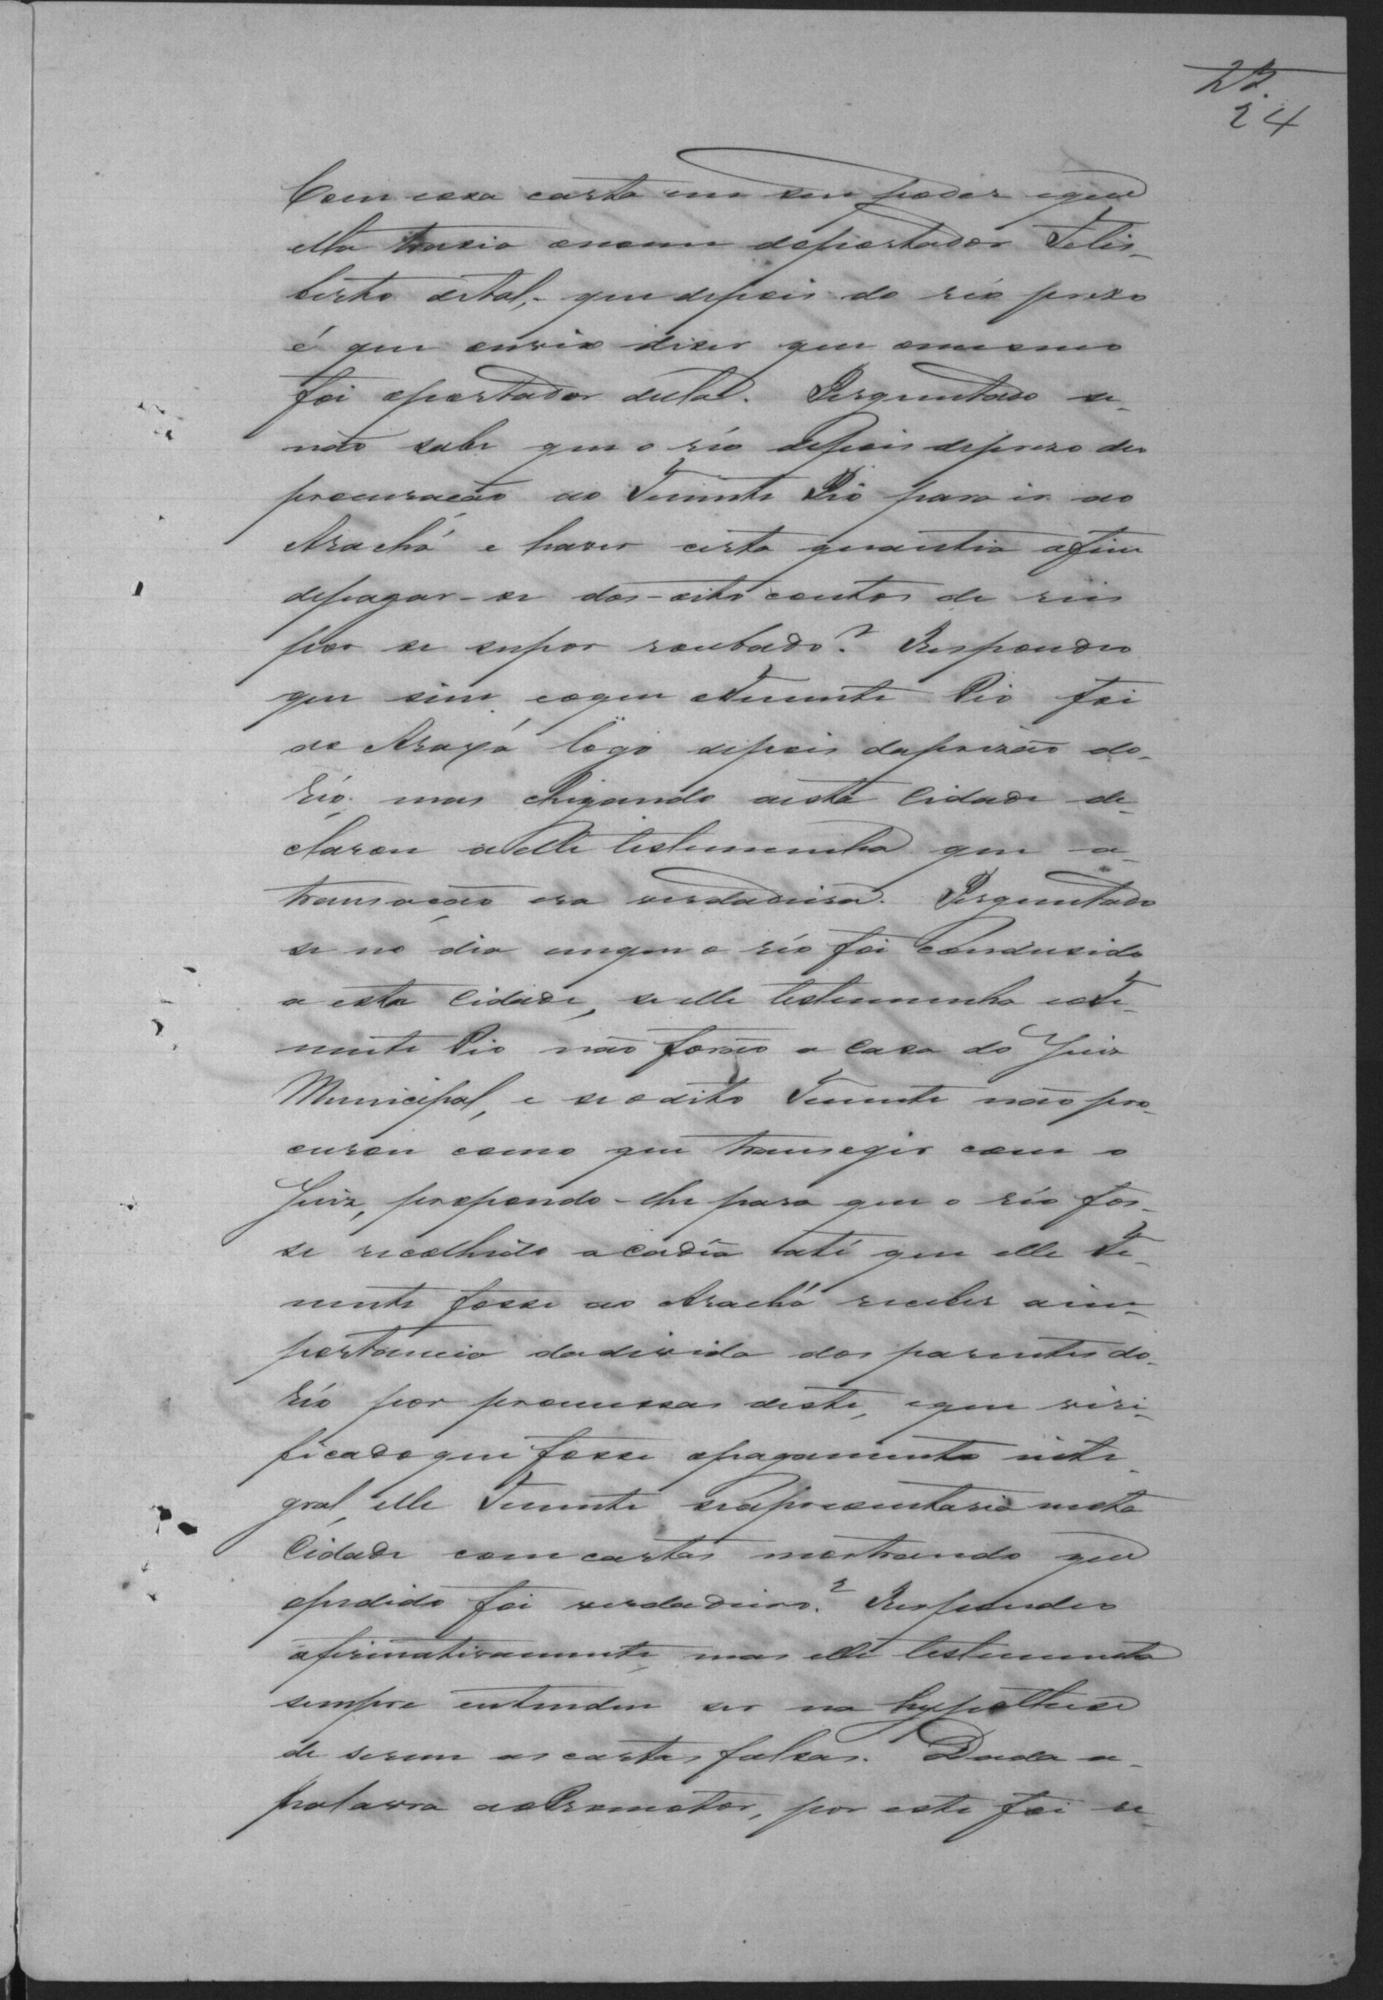 27.
24
Com essa carta em seu poder e que
ella trazia o nome do portador Felis-
berto de tal, que depois do réo prezo
é que ouvio dizer que o mesmo
foi o portador della. Perguntado se
não sabe que o réo depois de prezo deu
procuração ao Tenente Pio para ir ao
Arachá e haver certa quantia afim
de pagar-se dos oito contos de reis
por se supor roubado? Respondeo
que sim, e que o Tenente Pio foi
ao Araxá logo depois da prizão do
réo, mas chigando a esta Cidade de-
clarou a elle testemunha que a
transação era verdadeira. Perguntado
se no dia em que o réo foi condusido
a esta Cidade, se elle testemunha e o Te-
nente Pio não forão a Casa do Juiz
Municipal, e se o dito Tenente não pro-
curou como que transegir com o
Juiz, propondo-lhe para que o réo fos-
se recolhido a cadêa até que elle Te-
nente fosse ao Arachá receber a im-
portancia da divida dos parentes do
réo por promessas deste, e que viri-
ficado que fosse o pagamento inte-
gral elle Tenente se apresentaria nesta
Cidade com cartas mostrando que
o pedido foi verdadeiro? Respondeo
afirmativamente, mas elle testemunha
sempre entendeu ser na hypothese
de serem as cartas falsas. Dada a
palavra ao Promotor, por este foi re-